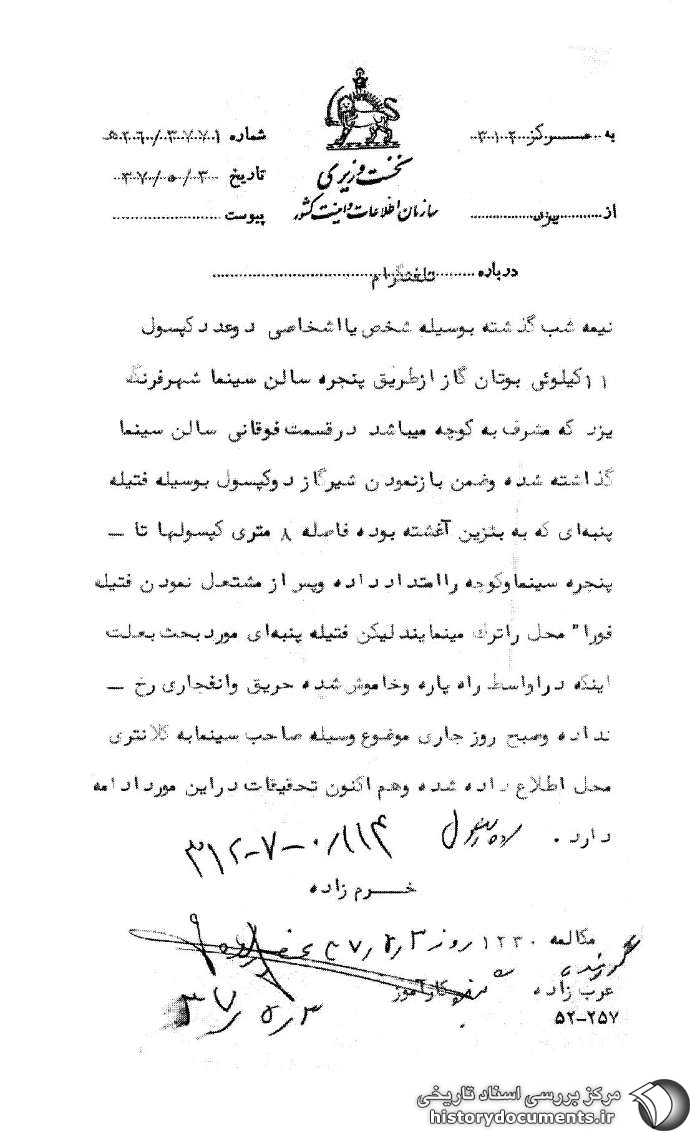 به مرکز ۳۱۲
شماره ۵۲۶۰/۳۷۷۱ ه
نخست وزیری
تاریخ ۳۷/۵/۳
سازمان اطلاعات و امنیت کشور
از یزد
پیوست
درباره تلفنگرام
نیمه شب گذشته بوسیله شخص یا اشخاصی دو عدد کپسول
۱۱ کیلوئی بوتان گاز از طریق پنجره سالن سینما شهر فرنگ
یزد که مشرف به کوچه میباشد در قسمت فوقانی سالن سینما
گذاشته شده وضمن باز نمودن شیر گاز دو کپسول بوسیله فتیله
پنبه‌ای که به بنزین آغشته بوده فاصله ۸ متری کپسولها تا –
پنجره سینما وکوچه را امتداد داده وپس از مشتعل نمودن فتیله
فورا" محل را ترک مینمایند لیکن فتیله پنبه‌ای مورد بحث بعلت
اینکه در اواسط راه پاره وخاموش شده حریق وانفجاری رخ –
نداده وصبح روز جاری موضوع وسیله صاحب سینما به کلانتری
محل اطلاع داده شده وهم اکنون تحقیقات در این مورد ادامه
دارد .
خرم زاده
مکالمه ۱۲۳۰ روز ۳/۵/۳۷
گوینده
عرب زاده کارآموز
۵۲-۲۵۷
۳۷/۵/۳
مرکز بررسی اسناد تاریخی
historydocuments.ir